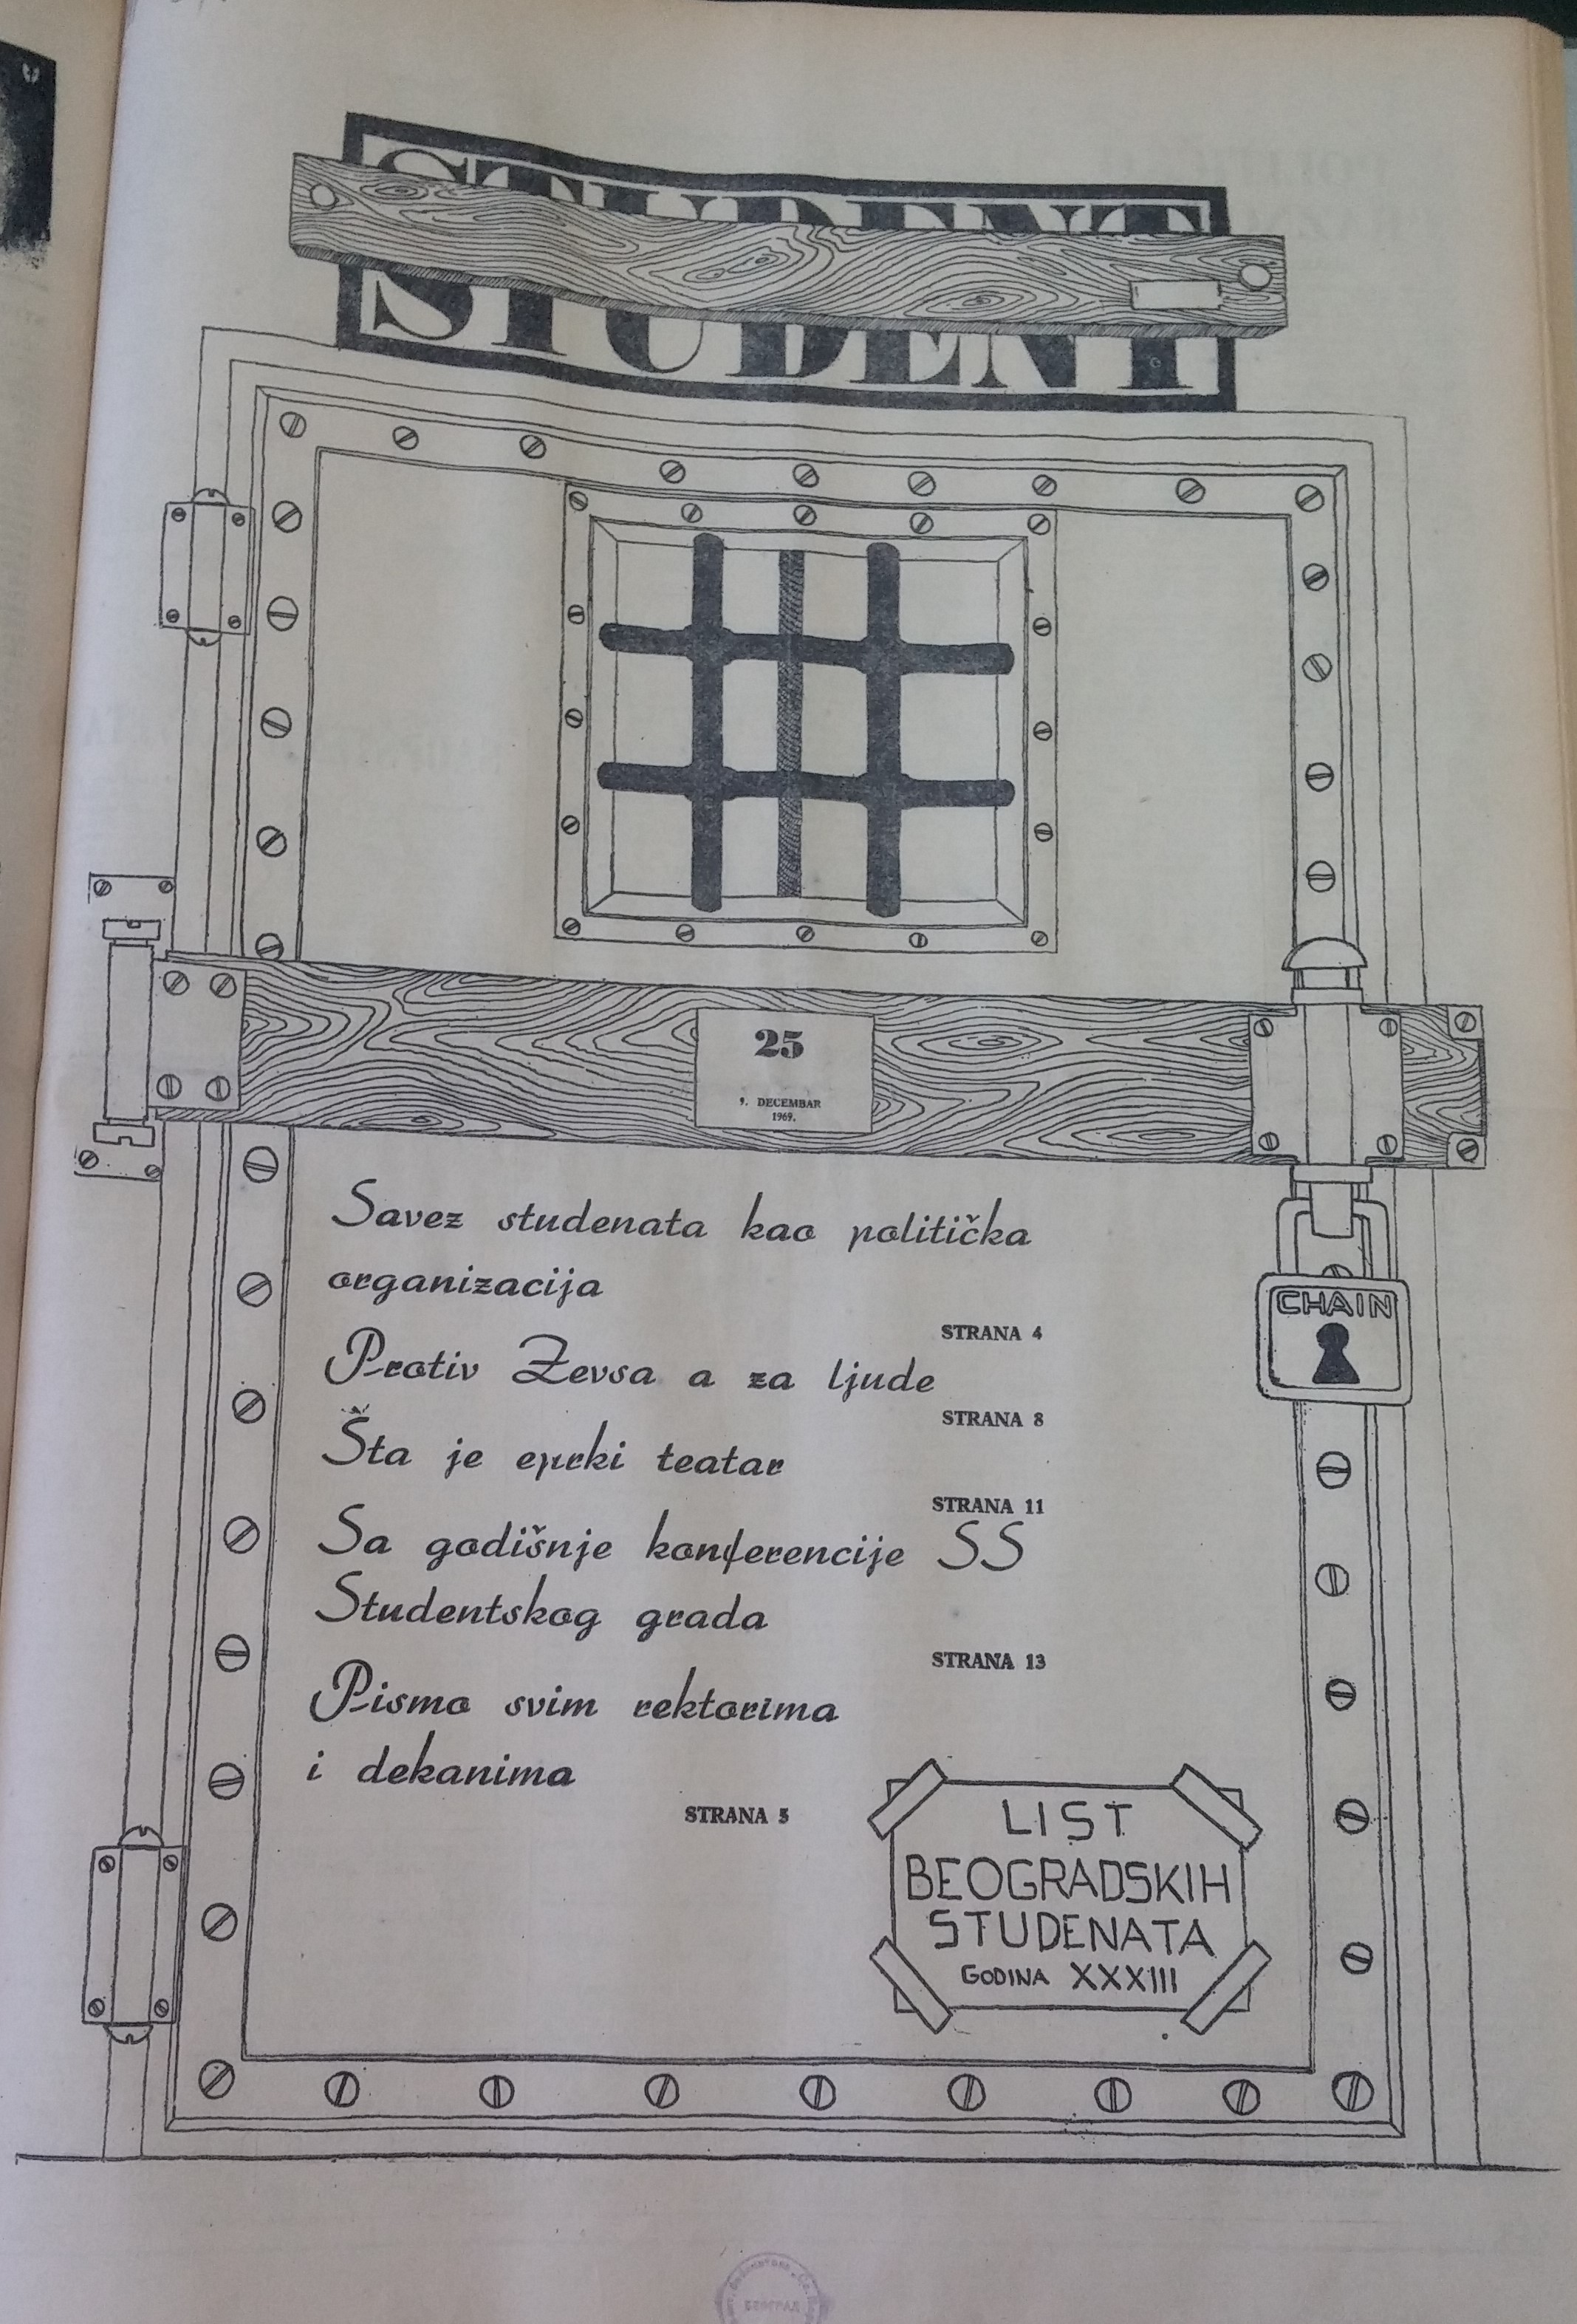 STUDENT
25
9. DECEMBAR
1969.
Savez studenata kao politička
organizacija
STRANA 4
CHAIN
Protiv Zevsa a za ljude
STRANA 8
Šta je eprki teatar
STRANA 11
Sa godišnje konferencije SS
Studentskog grada
STRANA 13
Pismo svim rektorima
i dekanima
STRANA 5
LIST
BEOGRADSKIH
STUDENATA
GODINA XXXIII
БЕОГРАД